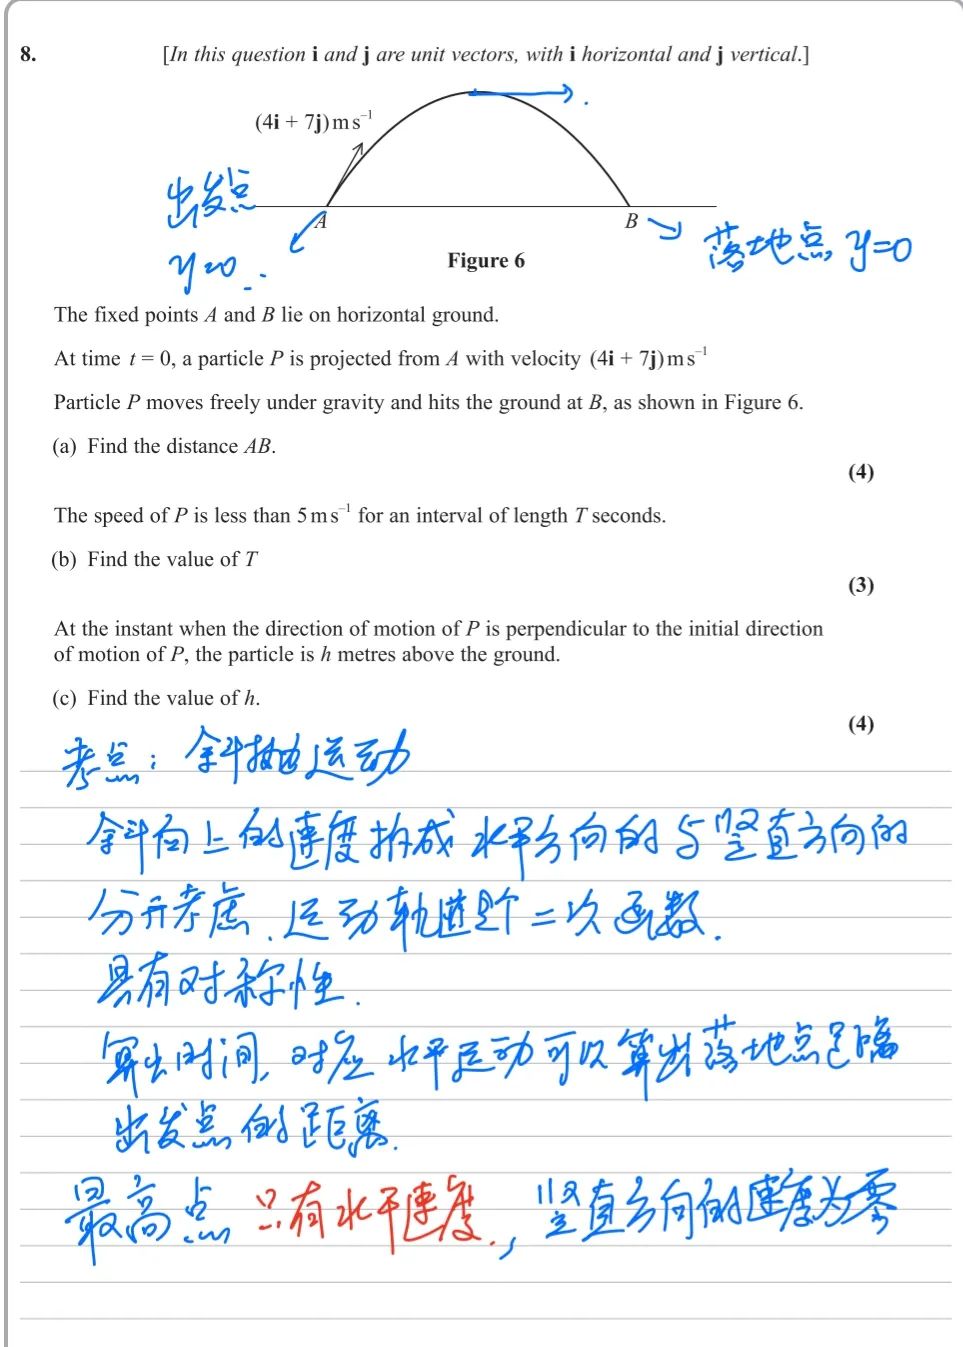 8.
[In this question i and j are unit vectors, with i horizontal and j vertical.]
(4i + 7j) m s⁻¹
出发点
A
B
y=0.
落地点 y=0
Figure 6
The fixed points A and B lie on horizontal ground.
At time t = 0, a particle P is projected from A with velocity (4i + 7j) m s⁻¹
Particle P moves freely under gravity and hits the ground at B, as shown in Figure 6.
(a) Find the distance AB.
(4)
The speed of P is less than 5 m s⁻¹ for an interval of length T seconds.
(b) Find the value of T
(3)
At the instant when the direction of motion of P is perpendicular to the initial direction
of motion of P, the particle is h metres above the ground.
(c) Find the value of h.
(4)
考点：斜抛运动
斜向上的速度拆成水平方向的与竖直方向的
分开考虑. 运动轨道是个二次函数.
具有对称性.
算出时间, 对应水平运动可以算出落地点距离
出发点的距离.
最高点 只有水平速度., 竖直方向的速度为零